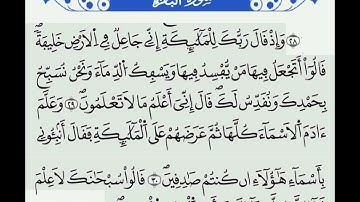 ٢٨ وَإِذْ قَالَ رَبُّكَ لِلْمَلَٰٓئِكَةِ إِنِّے جَاعِلٞ فِے اِ۬لَارْضِ خَلِيفَةٗۖ
قَالُوٓاْ أَتَجْعَلُ فِيهَا مَنْ يُّفْسِدُ فِيهَا وَيَسْفِكُ اُ۬لدِّمَآءَ وَنَحْنُ نُسَبِّحُ
بِحَمْدِكَ وَنُقَدِّسُ لَكَۖ قَالَ إِنِّيَ أَعْلَمُ مَا لَا تَعْلَمُونَۖ ٢٩ وَعَلَّمَ
ءَادَمَ اَ۬لَاسْمَآءَ كُلَّهَا ثُمَّ عَرَضَهُمْ عَلَي اَ۬لْمَلَٰٓئِكَةِ فَقَالَ أَنۢبِـُٔونِے
بِأَسْمَآءِ هَٰٓؤُلَآءِ ان كُنتُمْ صَٰدِقِينَۖ ٣٠ قَالُواْ سُبْحَٰنَكَ لَا عِلْمَ